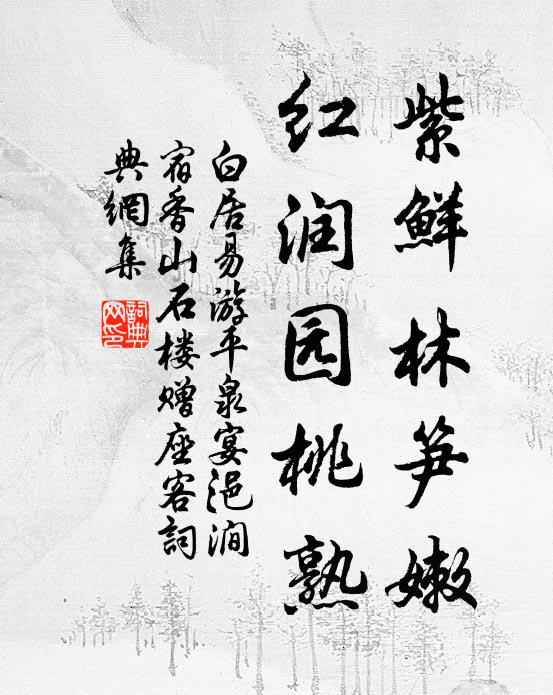 紫鲜林笋嫩
红润园桃熟
白居易游平泉宴浥涧
宿香山石楼赠座客詞
典網集
詞典
网印